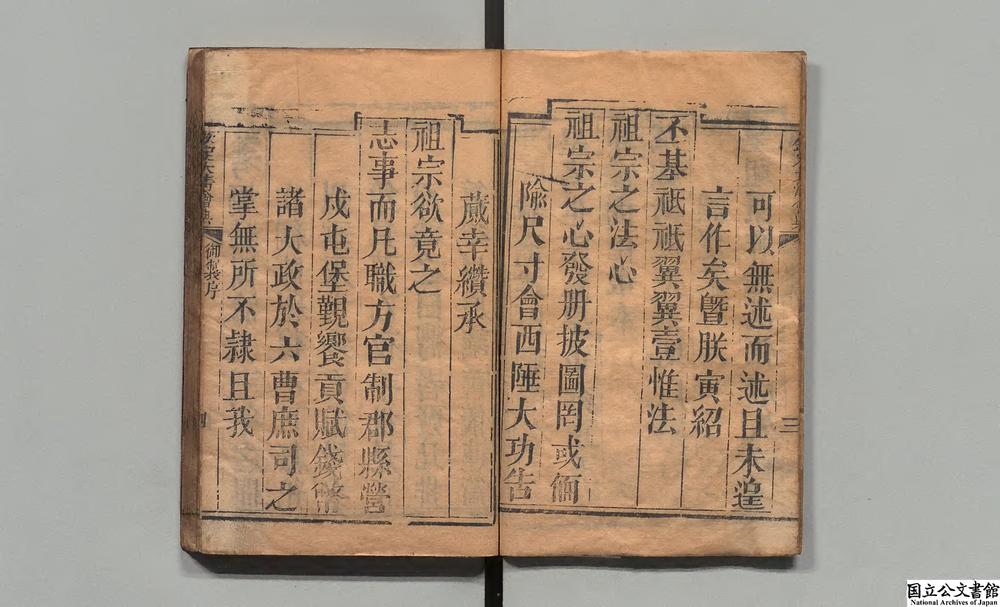 三
可以無述而述且未遑
言作矣曁朕寅紹
丕基祇祇翼翼壹惟法
祖宗之法心
祖宗之心發册披圖罔或偭
隃尺寸會西陲大功告
蕆幸纘承
祖宗欲竟之
志事而凡職方官制郡縣營
戍屯堡覲饗貢賦錢幣
諸大政於六曹庶司之
掌無所不隸且我
御製序
四
国立公文書館
National Archives of Japan